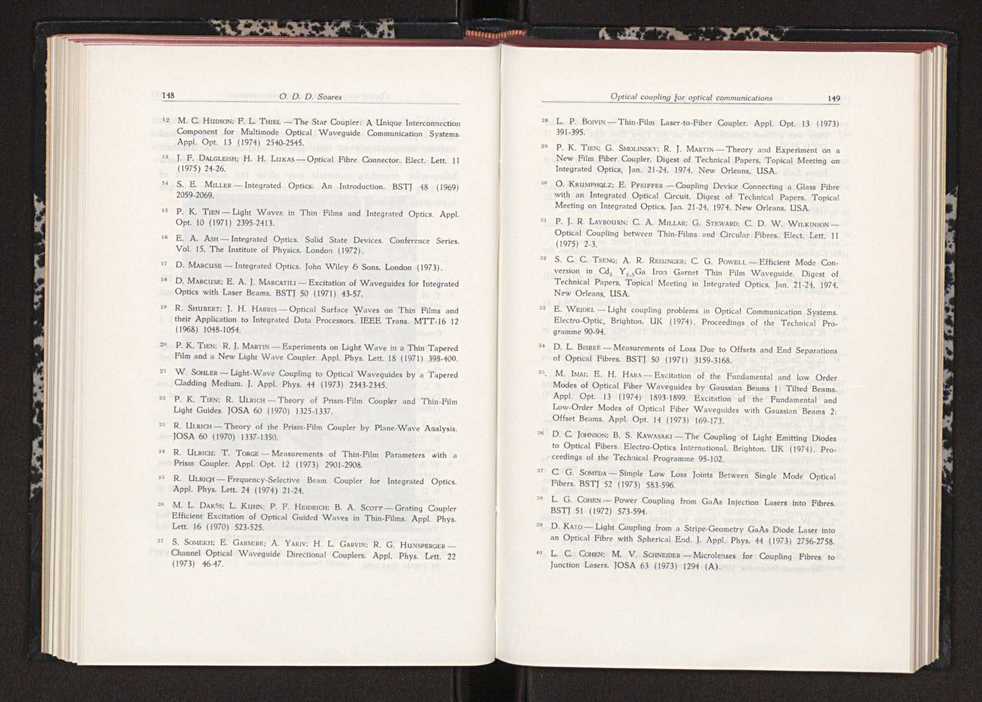 148
O. D. D. Soares
12 M. C. HUDSON; F. L. THIEL — The Star Coupler: A Unique Interconnection
Component for Multimode Optical Waveguide Communication Systems.
Appl. Opt. 13 (1974) 2540-2545.
13 J. F. DALGLEISH; H. H. LUKAS — Optical Fibre Connector. Elect. Lett. 11
(1975) 24-26.
14 S. E. MILLER — Integrated Optics: An Introduction. BSTJ 48 (1969)
2059-2069.
15 P. K. TIEN — Light Waves in Thin Films and Integrated Optics. Appl.
Opt. 10 (1971) 2395-2413.
16 E. A. ASH — Integrated Optics. Solid State Devices. Conference Series.
Vol. 15, The Institute of Physics. London (1972).
17 D. MARCUSE — Integrated Optics. John Wiley & Sons. London (1973).
18 D. MARCUSE; E. A. J. MARCATILI — Excitation of Waveguides for Integrated
Optics with Laser Beams. BSTJ 50 (1971) 43-57.
19 R. SHUBERT; J. H. HARRIS — Optical Surface Waves on Thin Films and
their Application to Integrated Data Processors. IEEE Trans. MTT-16 12
(1968) 1048-1054.
20 P. K. TIEN; R. J. MARTIN — Experiments on Light Wave in a Thin Tapered
Film and a New Light Wave Coupler. Appl. Phys. Lett. 18 (1971) 398-400.
21 W. SOHLER — Light-Wave Coupling to Optical Waveguides by a Tapered
Cladding Medium. J. Appl. Phys. 44 (1973) 2343-2345.
22 P. K. TIEN; R. ULRICH — Theory of Prism-Film Coupler and Thin-Film
Light Guides. JOSA 60 (1970) 1325-1337.
23 R. ULRICH — Theory of the Prism-Film Coupler by Plane-Wave Analysis.
JOSA 60 (1970) 1337-1350.
24 R. ULRICH; T. TORGE — Measurements of Thin-Film Parameters with a
Prism Coupler. Appl. Opt. 12 (1973) 2901-2908.
25 R. ULRICH — Frequency-Selective Beam Coupler for Integrated Optics.
Appl. Phys. Lett. 24 (1974) 21-24.
26 M. L. DAKSS; L. KUHN; P. F. HEIDRICH; B. A. SCOTT — Grating Coupler
Efficient Excitation of Optical Guided Waves in Thin-Films. Appl. Phys.
Lett. 16 (1970) 523-525.
27 S. SOMEKH; E. GARMIRE; A. YARIV; H. L. GARVIN; R. G. HUNSPERGER —
Channel Optical Waveguide Directional Couplers. Appl. Phys. Lett. 22
(1973) 46-47.
Optical coupling for optical communications
149
28 L. P. BOIVIN — Thin-Film Laser-to-Fiber Coupler. Appl. Opt. 13 (1973)
391-395.
29 P. K. TIEN; G. SMOLINSKY; R. J. MARTIN — Theory and Experiment on a
New Film Fiber Coupler. Digest of Technical Papers. Topical Meeting on
Integrated Optics, Jan. 21-24, 1974, New Orleans, USA.
30 O. KRUMPHOLZ; E. PFEIFFER — Coupling Device Connecting a Glass Fibre
with an Integrated Optical Circuit. Digest of Technical Papers. Topical
Meeting on Integrated Optics. Jan. 21-24, 1974. New Orleans, USA.
31 P. J. R. LAYBOURN; C. A. MILLAR; G. STEWARD; C. D. W. WILKINSON —
Optical Coupling between Thin-Films and Circular Fibres. Elect. Lett. 11
(1975) 2-3.
32 S. C. C. TSENG; A. R. REISINGER; C. G. POWELL — Efficient Mode Con-
version in Cd3 Y Ga Iron Garnet Thin Film Waveguide. Digest of
Technical Papers. Topical Meeting in Integrated Optics, Jan. 21-24, 1974,
New Orleans, USA.
33 E. WEIDEL — Light coupling problems in Optical Communication Systems.
Electro-Optic, Brighton, UK (1974). Proceedings of the Technical Pro-
gramme 90-94.
34 D. L. BISBEE — Measurements of Loss Due to Offsets and End Separations
of Optical Fibres. BSTJ 50 (1971) 3159-3168.
35 M. IMAI; E. H. HARA — Excitation of the Fundamental and low Order
Modes of Optical Fiber Waveguides by Gaussian Beams 1: Tilted Beams.
Appl. Opt. 13 (1974) 1893-1899. Excitation of the Fundamental and
Low-Order Modes of Optical Fiber Waveguides with Gaussian Beams 2:
Offset Beams. Appl. Opt. 14 (1973) 169-173.
36 D. C. JOHNSON; B. S. KAWASAKI — The Coupling of Light Emitting Diodes
to Optical Fibers. Electro-Optics International. Brighton. UK (1974). Pro-
ceedings of the Technical Programme 95-102.
37 C. G. SOMEDA — Simple Low Loss Joints Between Single Mode Optical
Fibers. BSTJ 52 (1973) 583-596.
38 L. G. COHEN — Power Coupling from GaAs Injection Lasers into Fibres.
BSTJ 51 (1972) 573-594.
39 D. KATO — Light Coupling from a Stripe-Geometry GaAs Diode Laser into
an Optical Fibre with Spherical End. J. Appl. Phys. 44 (1973) 2756-2758.
40 L. C. COHEN; M. V. SCHNEIDER — Microlenses for Coupling Fibres to
Junction Lasers. JOSA 63 (1973) 1294 (A).